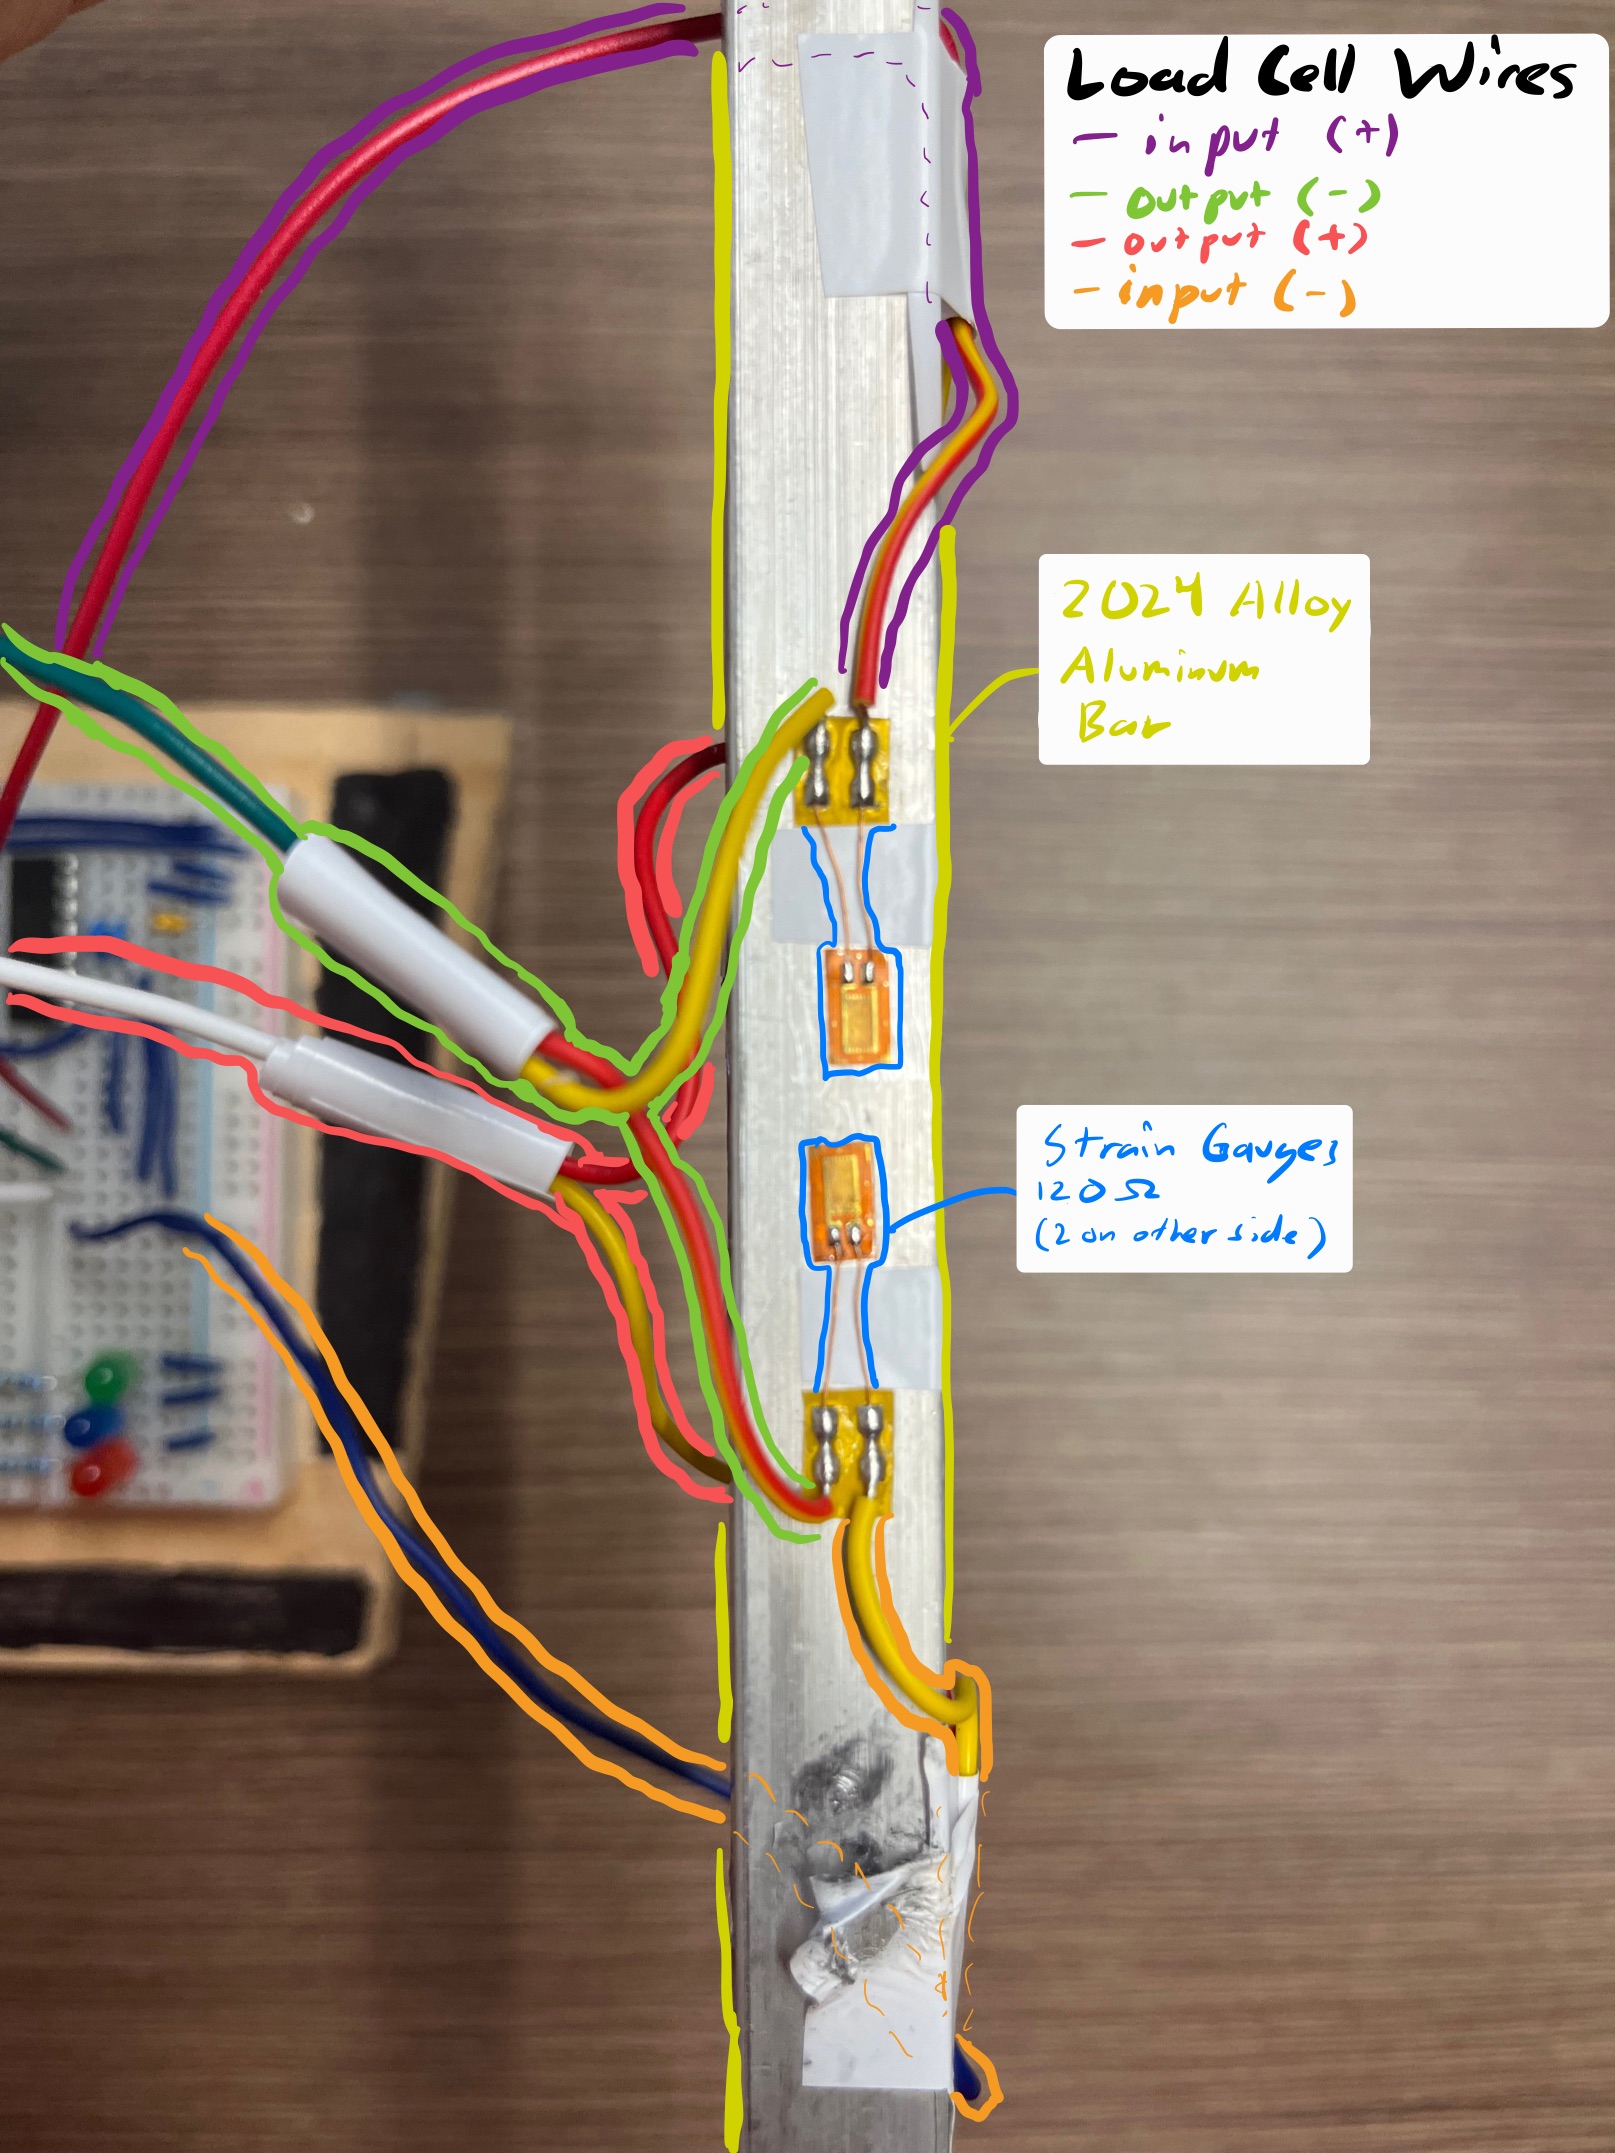 Load Cell Wires
- input (+)
- output (-)
- output (+)
- input (-)
2024 Alloy
Aluminum
Bar
Strain Gauges
120 Ω
(2 on other side)